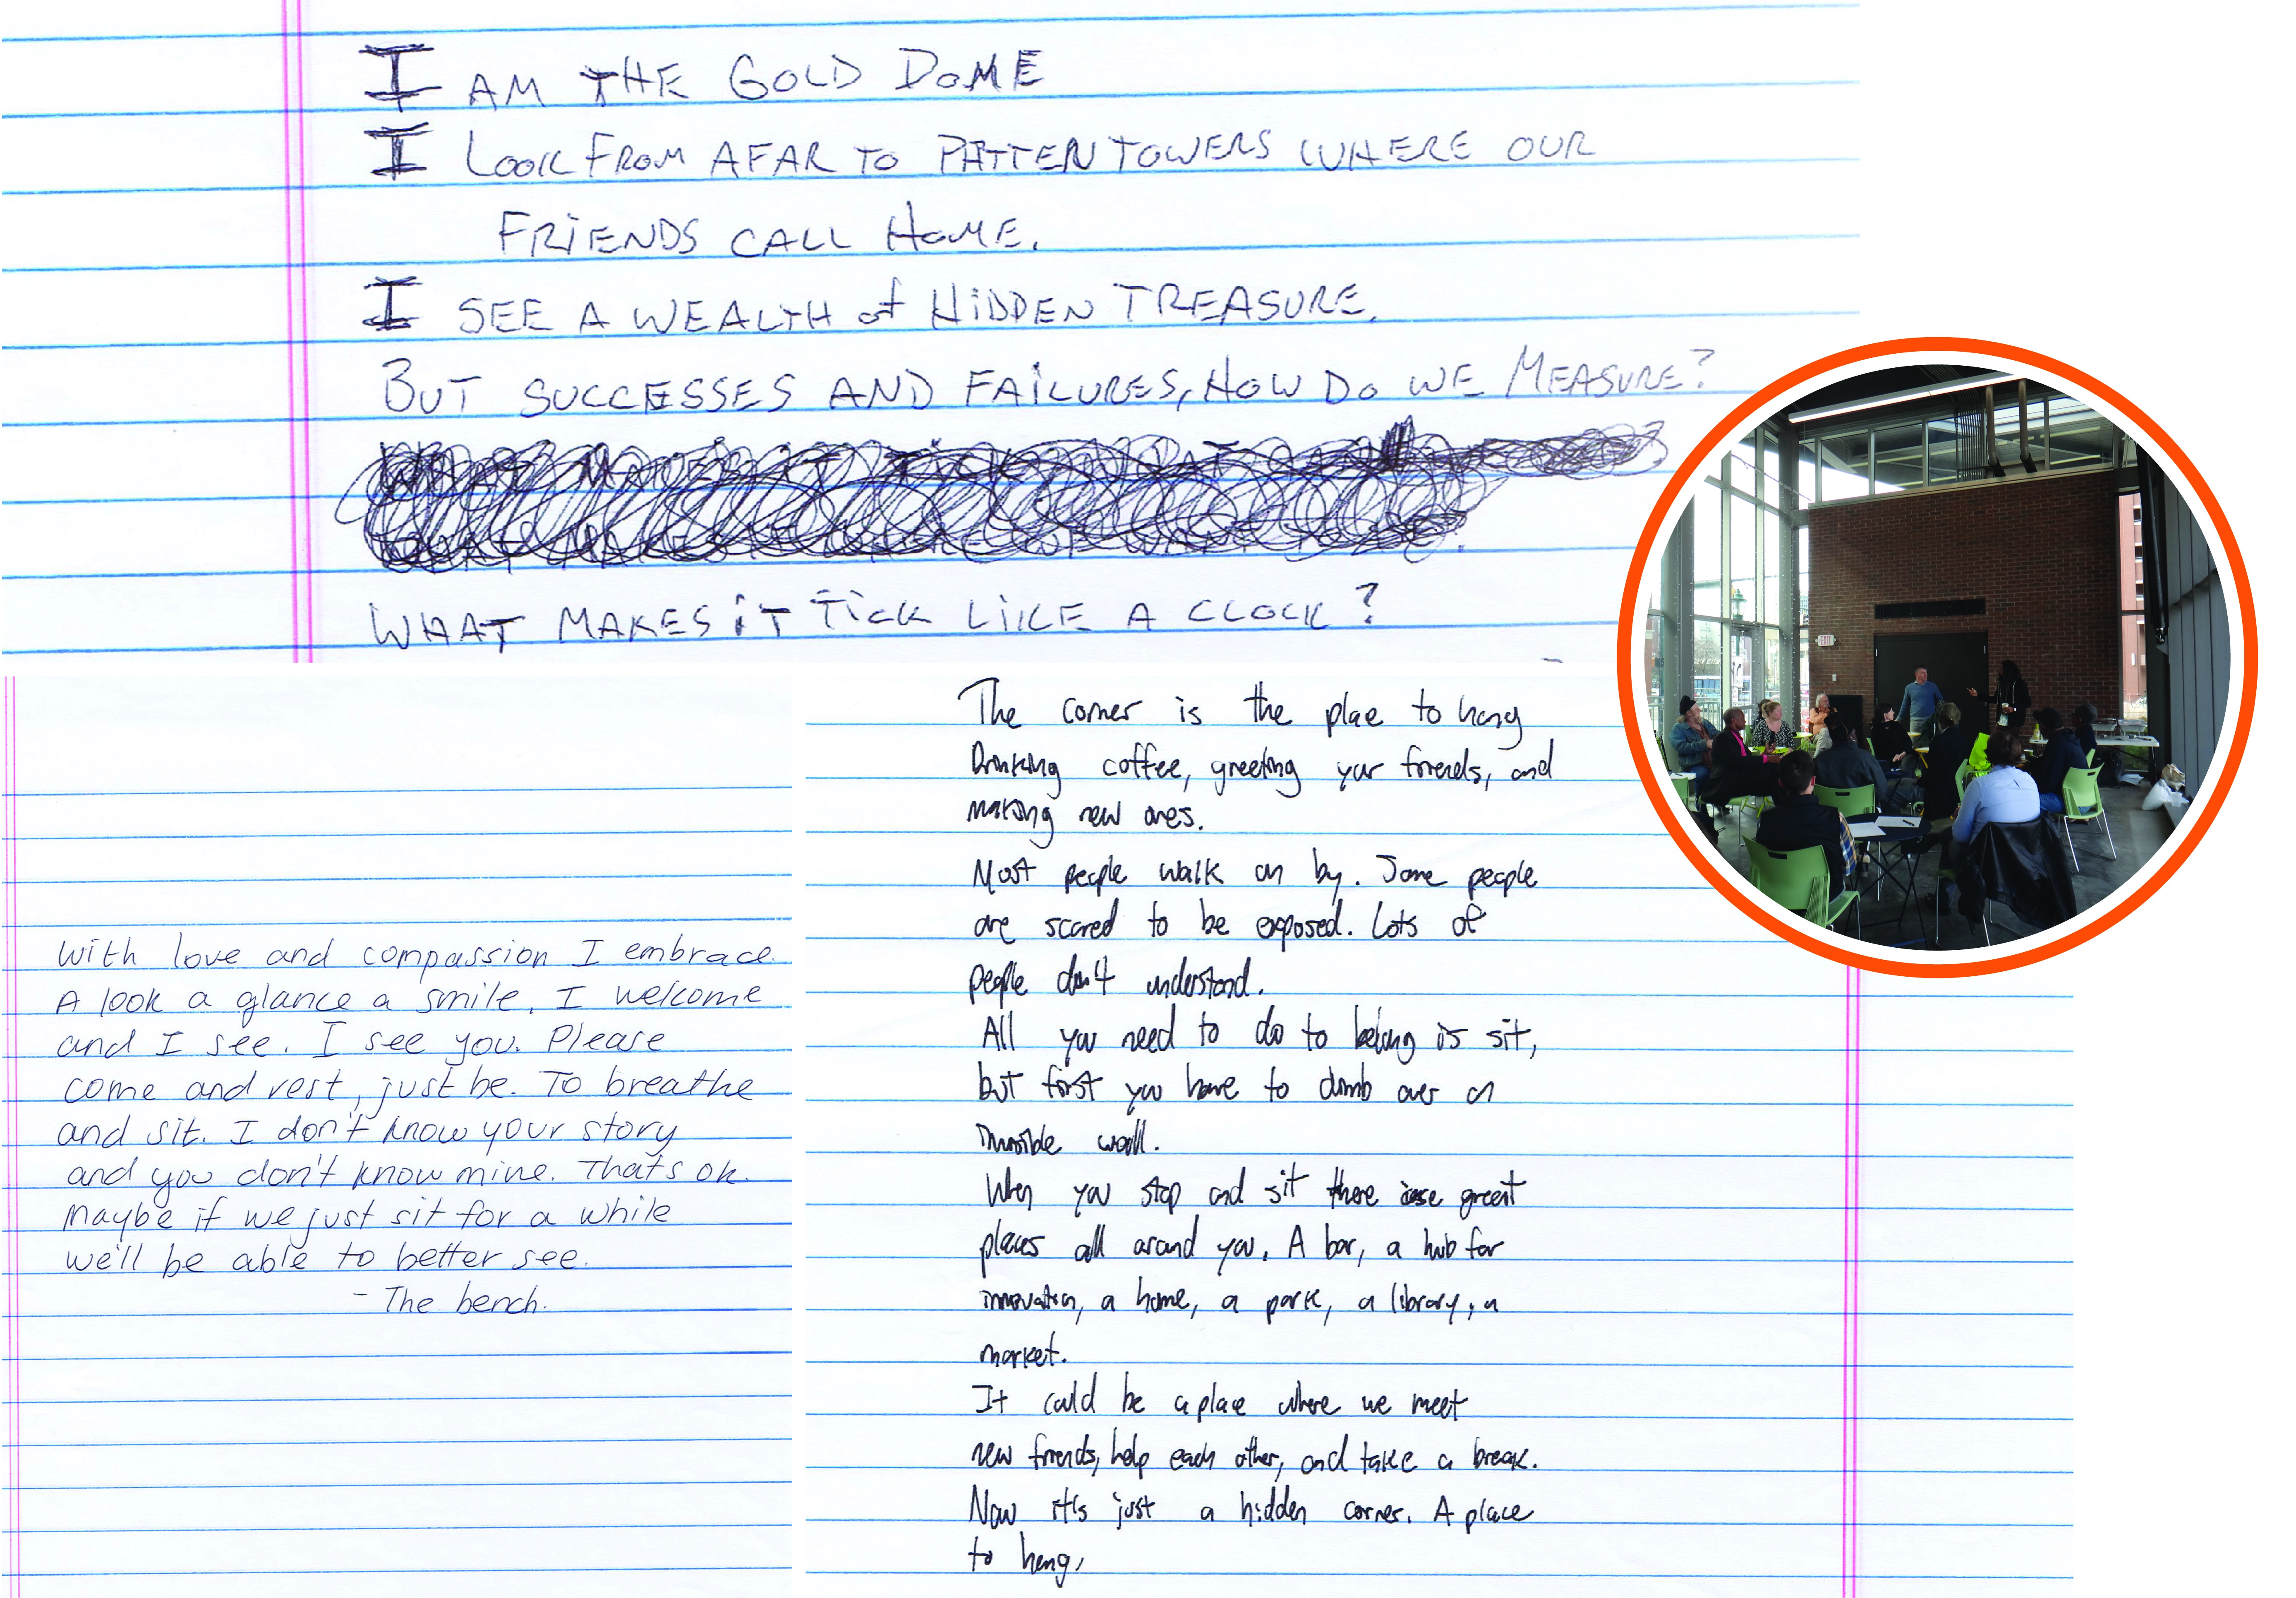 I AM THE GOLD DOME
I LOOK FROM AFAR TO PATTEN TOWERS WHERE OUR
FRIENDS CALL HOME.
I SEE A WEALTH of HIDDEN TREASURE.
BUT SUCCESSES AND FAILURES, HOW DO WE MEASURE?
WHAT MAKES iT TiCK LIKE A CLOCK?
With love and compassion I embrace.
A look a glance a smile, I welcome
and I see. I see you. Please
come and rest, just be. To breathe
and sit. I don't know your story
and you don't know mine. That's ok.
Maybe if we just sit for a while
we'll be able to better see.
- The bench.
The corner is the plae to hang
Drinking coffee, greeting your friends, and
making new ones.
Most people walk on by. Some people
are scared to be exposed. Lots of
people don't understand.
All you need to do to belong is sit,
but first you have to climb over an
invisible wall.
When you stop and sit there are great
places all around you. A bar, a hub for
innovation, a home, a park, a library, a
market.
It could be a place where we meet
new friends, help each other, and take a break.
Now it's just a hidden corner. A place
to hang,
EXIT